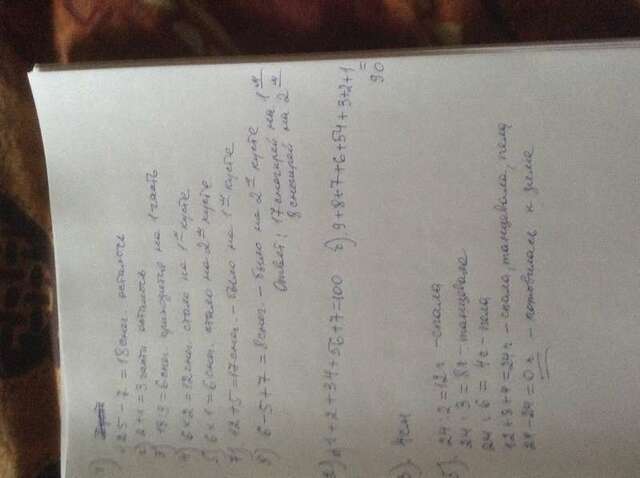 1)
1) 25 - 7 = 18 снег. осталось
2) 2 + 1 = 3 части осталось
3) 18 : 3 = 6 снег. приходится на 1 часть
4) 6 × 2 = 12 снег. стало на 1 м кусте
5) 6 × 1 = 6 снег. стало на 2 м кусте
7) 12 + 5 = 17 снег. - было на 1 м кусте
8) 6 - 5 + 7 = 8 снег. - было на 2 м кусте
Ответ: 17 снегирей на 1 м
8 снегирей на 2 м
2) а) 1 + 2 + 34 + 56 + 7 = 100 б) 9 + 8 + 7 + 6 + 54 + 3 + 2 + 1
=
90
3). 4 см
5).
24 : 2 = 12 ч - спала
24 : 3 = 8 ч - танцевала
24 : 6 = 4 ч - пела
12 + 8 + 4 = 24 ч - спала, танцевала, пела
24 - 24 = 0 ч - готовилась к зиме